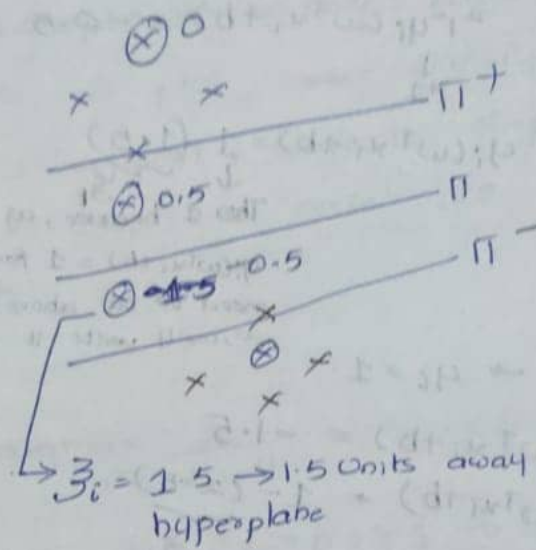 0
Π+
1 0.5
Π
0.5
Π-
ξi = 1.5 → 1.5 units away
hyperplane